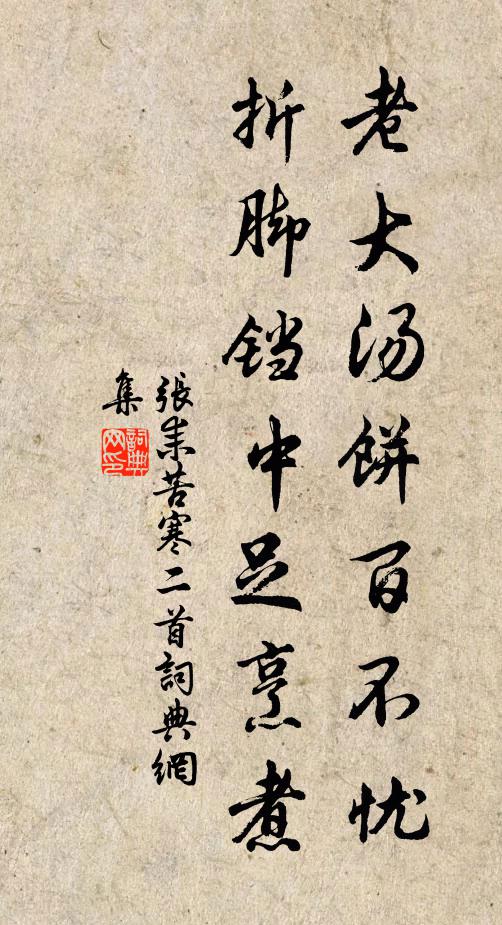 老大汤餅百不忧
折脚铛中足烹煮
張耒苦寒二首詞典網
集
詞典
网印